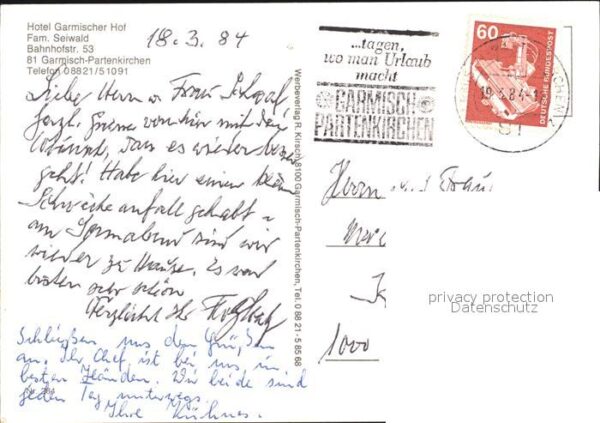 Hotel Garmischer Hof
Fam. Seiwald
Bahnhofstr. 53
81 Garmisch-Partenkirchen
Telefon 08821/51091
18.3.84
Liebe Herr u. Frau
herzl. von hier mit der
, dass es wieder besser
geht! Habe hier einen kleinen
Schwächeanfall gehabt -
am Sonnabend sind wir
wieder zu Hause. Es war
bisher sehr schön
Herzlichst Ihr
Schließen uns den Grüßen
an. Ihr Chef ist bei uns in
besten Händen. Wir beide sind
jeden Tag unterwegs.
Ihre
Werbeverlag R. Kirsch, 8100 Garmisch-Partenkirchen, Tel. 0 88 21 - 5 85 68
...tagen,
wo man Urlaub
macht
GARMISCH
PARTENKIRCHEN
60
DEUTSCHE BUNDESPOST
19.3.84
81
Herrn und Frau
1000
privacy protection
Datenschutz